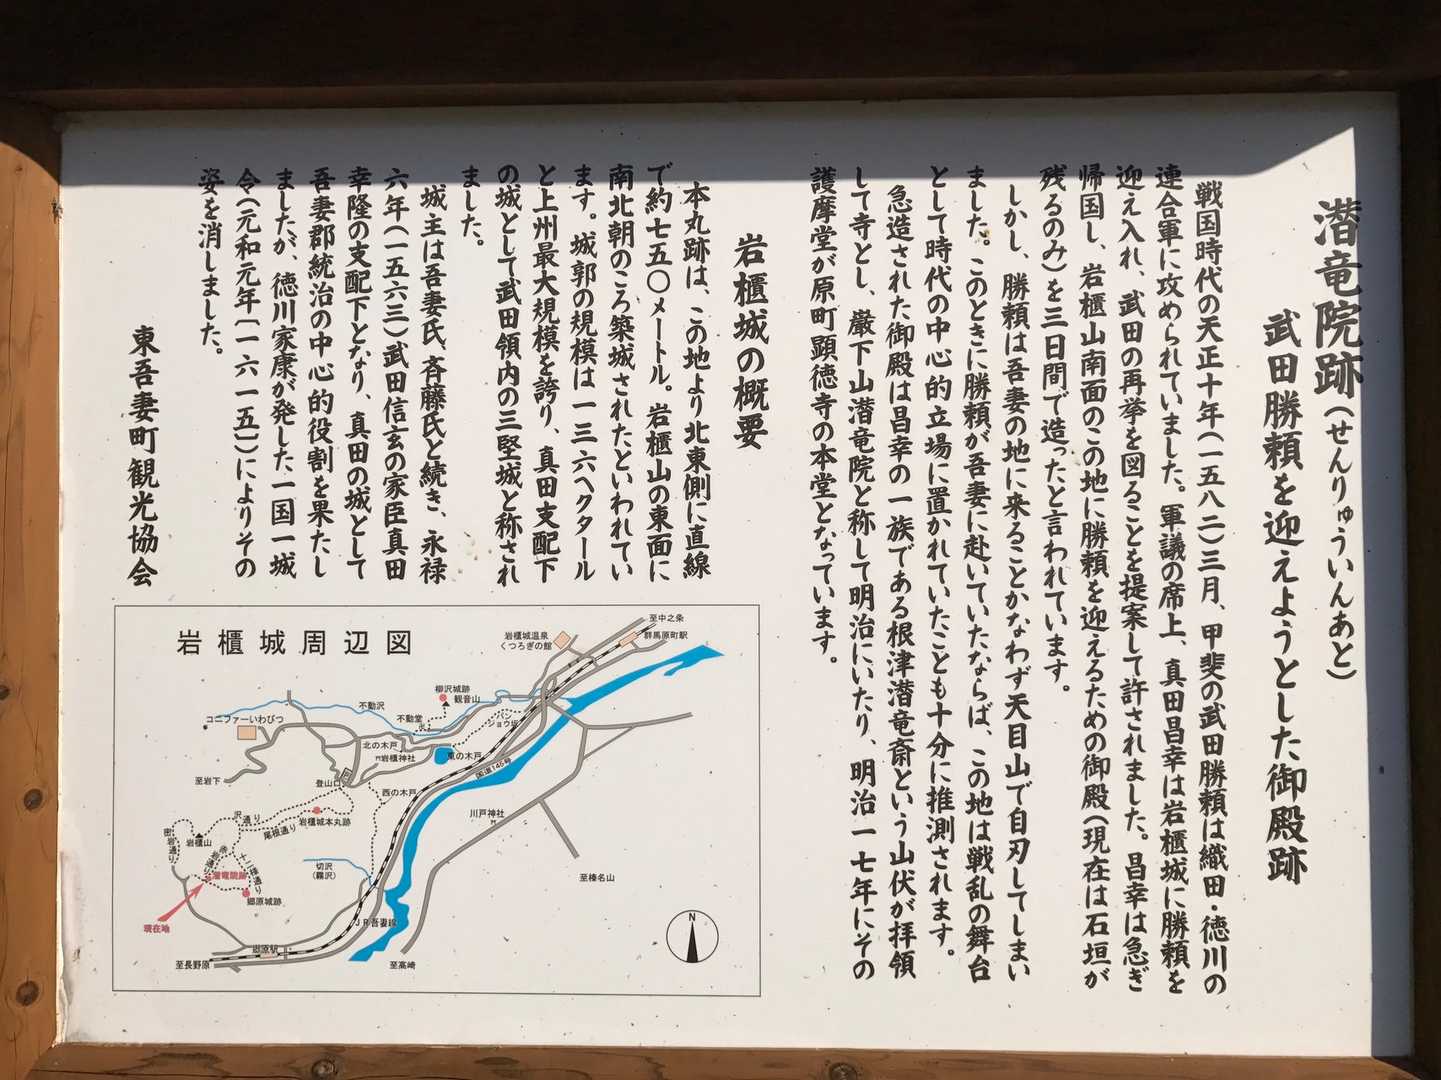 潜竜院跡(せんりゅういんあと)
武田勝頼を迎えようとした御殿跡
戦国時代の天正十年(一五八二)三月、甲斐の武田勝頼は織田・徳川の
連合軍に攻められていました。軍議の席上、真田昌幸は岩櫃城に勝頼を
迎え入れ、武田の再挙を図ることを提案して許されました。昌幸は急ぎ
帰国し、岩櫃山南面のこの地に勝頼を迎えるための御殿(現在は石垣が
残るのみ)を三日間で造ったと言われています。
しかし、勝頼は吾妻の地に来ることかなわず天目山で自刃してしまい
ました。このときに勝頼が吾妻に赴いていたならば、この地は戦乱の舞台
として時代の中心的立場に置かれていたことも十分に推測されます。
急造された御殿は昌幸の一族である根津潜竜斎という山伏が拝領
して寺とし、巌下山潜竜院と称して明治にいたり、明治一七年にその
護摩堂が原町顕徳寺の本堂となっています。
岩櫃城の概要
本丸跡は、この地より北東側に直線
で約七五〇メートル。岩櫃山の東面に
南北朝のころ築城されたといわれてい
ます。城郭の規模は一三六ヘクタール
と上州最大規模を誇り、真田支配下
の城として武田領内の三堅城と称され
ました。
城主は吾妻氏、斉藤氏と続き、永禄
六年(一五六三)武田信玄の家臣真田
幸隆の支配下となり、真田の城として
吾妻郡統治の中心的役割を果たし
ましたが、徳川家康が発した一国一城
令(元和元年(一六一五)によりその
姿を消しました。
東吾妻町観光協会
岩櫃城周辺図
至中之条
群馬原町駅
岩櫃城温泉
くつろぎの館
柳沢城跡
観音山
不動沢
不動堂
バン
ジョウ坂
コニファーいわびつ
北の木戸
岩櫃神社
東の木戸
国道145号
至岩下
登山口
西の木戸
川戸神社
沢通り
尾根通り
岩櫃城本丸跡
密岩通り
岩櫃山
赤岩通り
十二様通り
切沢
(霧沢)
潜竜院跡
郷原城跡
至榛名山
現在地
JR吾妻線
郷原駅
至長野原
至高崎
N